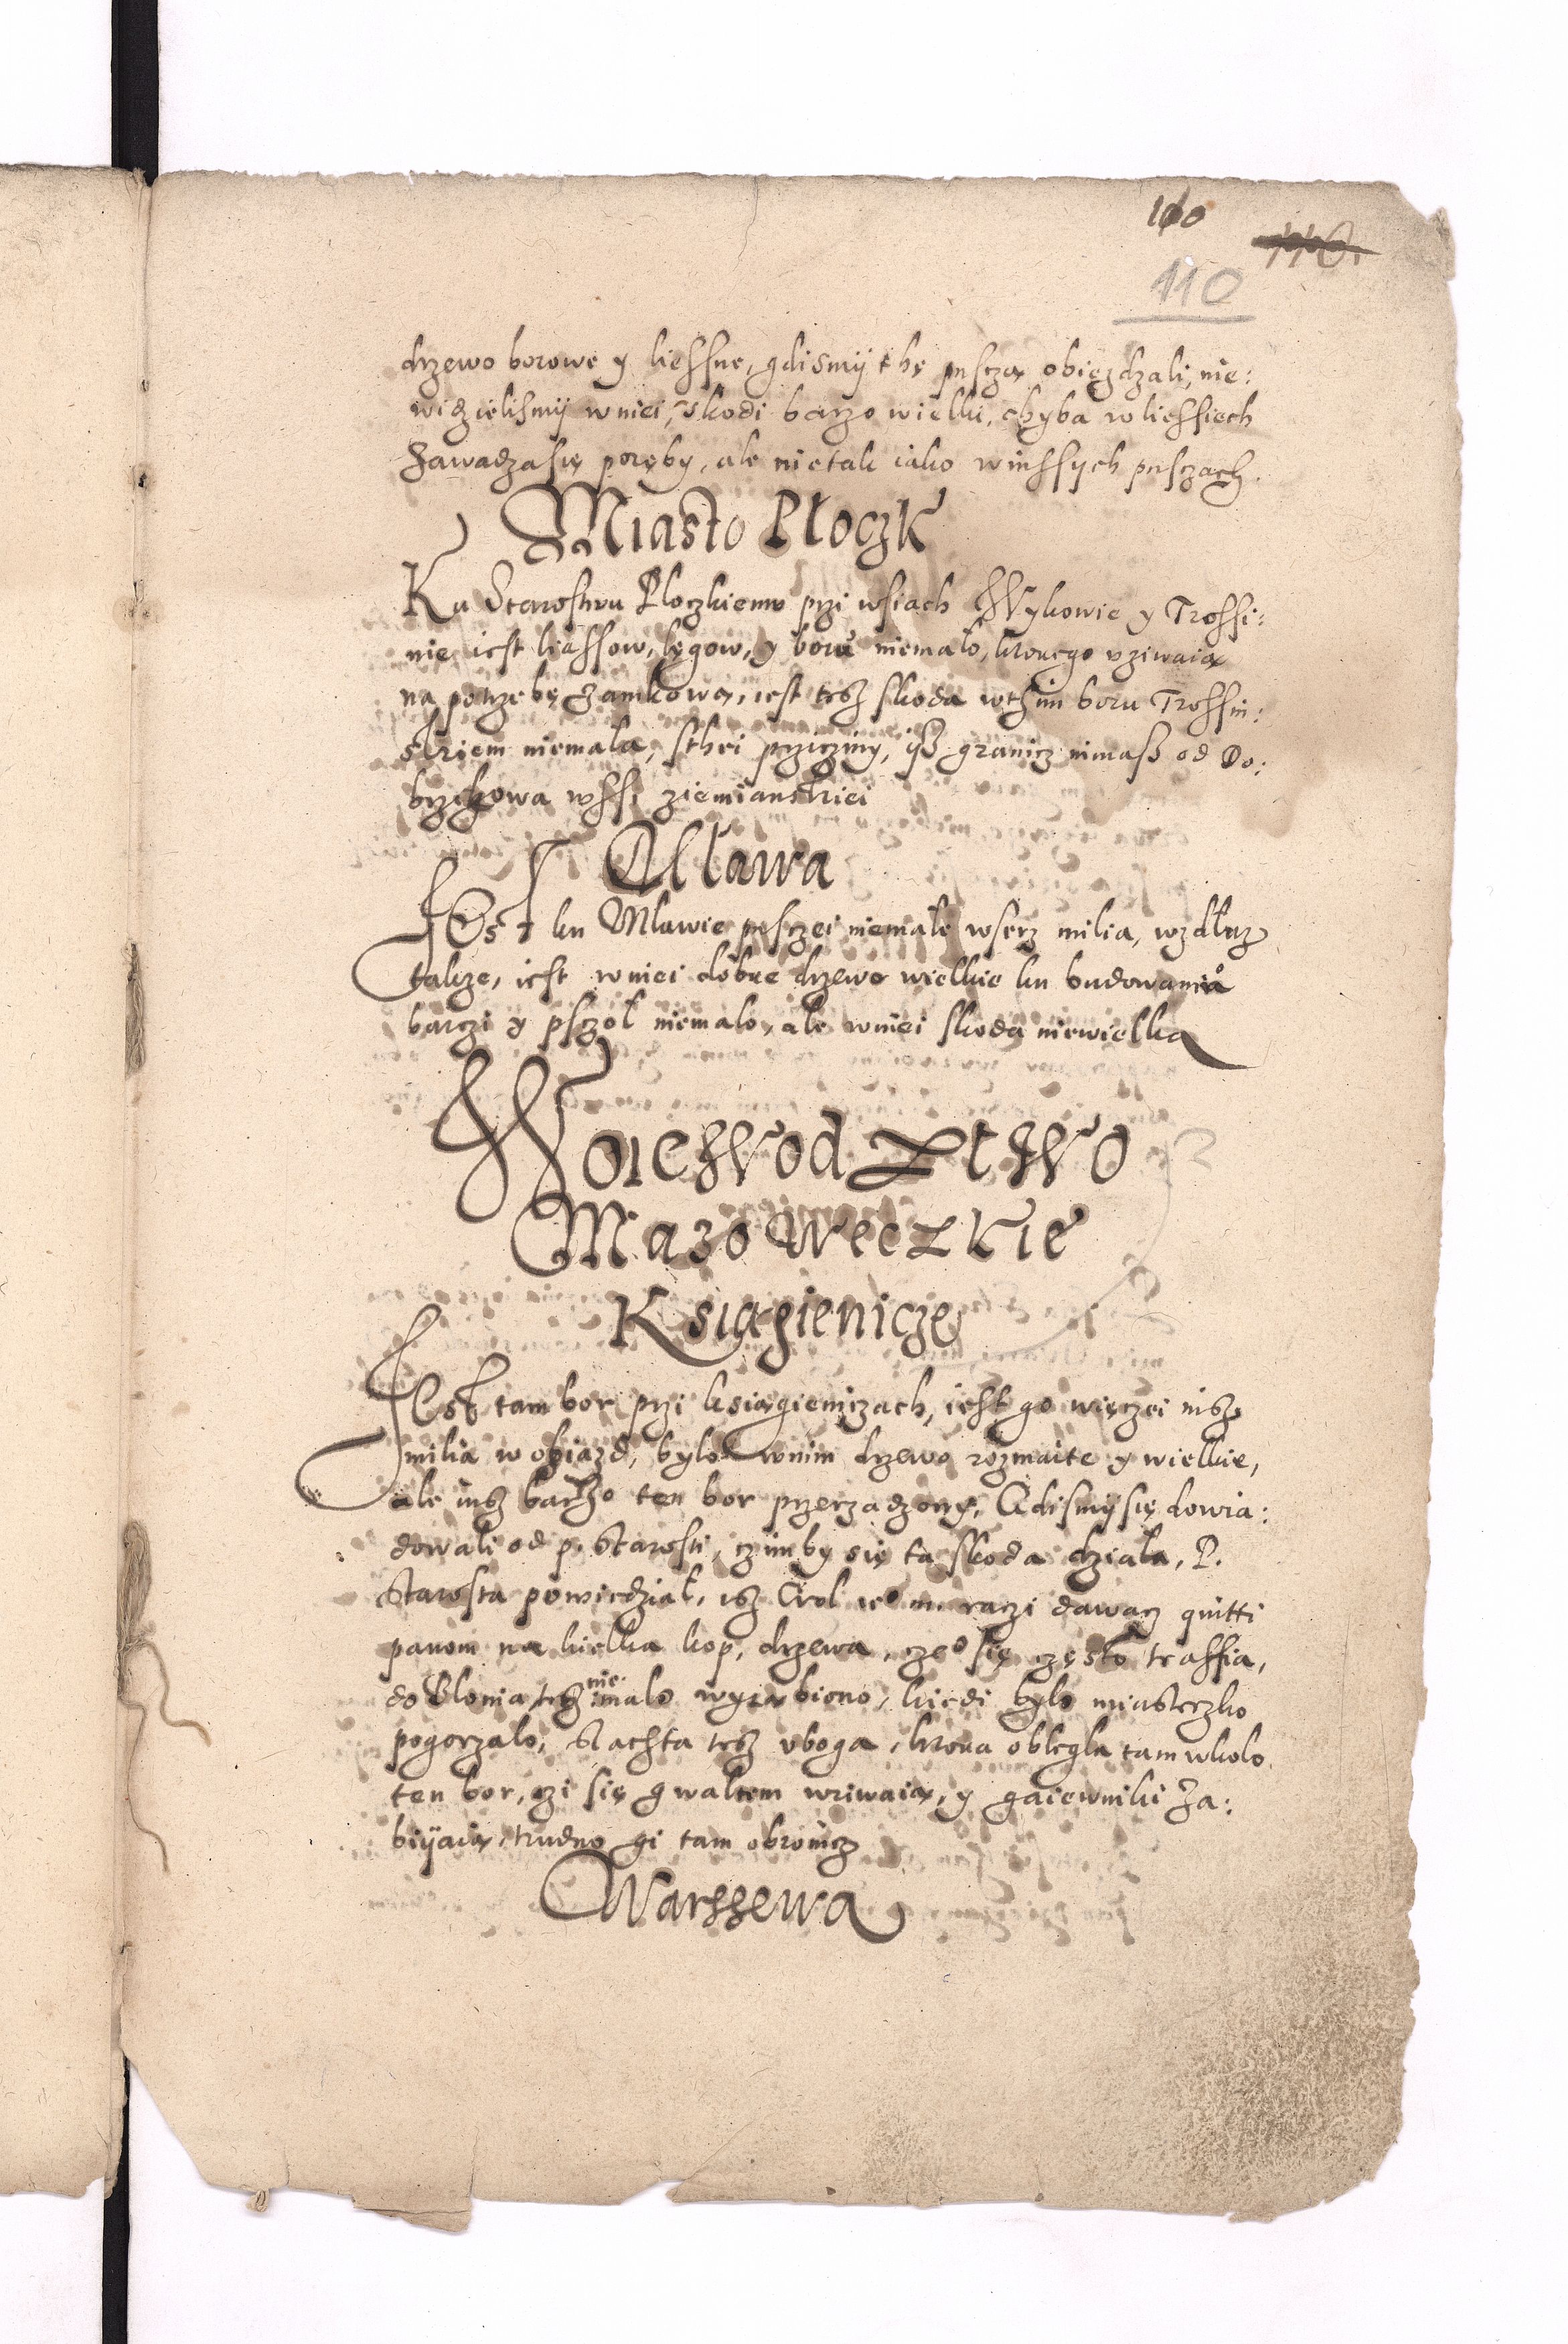 100
110.
110
drzewo borowe y liessne, gdismÿ thę pusczą obięzdzali, nie:
widzielismÿ wniei, skodi barzo wielki, chyba w liessiech
Zawadzasię poręby, ale nietak iako winssych pusczach.
Miasto Płoczk
Ku Starostwu Płoczkiemu przi wsiach Wykowie y Trossi:
nie iest liassow, lęgow, y boru niemało, ktorego vziwaią
na potrzebę zamkową, iest tesz skoda wthim boru Trossin:
skiem niemala, sthei przicziny, isz granicz nimasz od Do:
brzikowa wssi ziemianskiei
Mława
Jest ku Mlawie pusczei niemałe wserz milia, wzdłuz
takze, iest wniei dobre drzewo wielkie ku budowaniu
barczi y psczol niemalo, ale wniei skoda niewielka
Woiewodzthwo
Mazoweczkie
Ksiągienicze
Jest tam bor przi ksiągieniczach, iest go więczei nisz
milia w obiazd, bylo wnim drzewo rozmaite y wielkie,
ale iusz barzo ten bor przerzadzony, Gdismÿ się dowia:
dowali od p. Starosti, czimby się ta skoda działa, P.
Starosta powiedział, isz Crol ieo m. raczi dawacz quitti
panom na kielka kop, drzewa, czeo się często traffia,
do Blonia tesz niemalo wyrabiono, kiedi bylo miasteczko
pogorzalo, Slachta tesz vboga, ktora oblegla tam wkolo
ten bor, czi się gwaltem wriwaią, y gaiewniki Za:
biÿaią, trudno gi tam obronicz
Warssewa